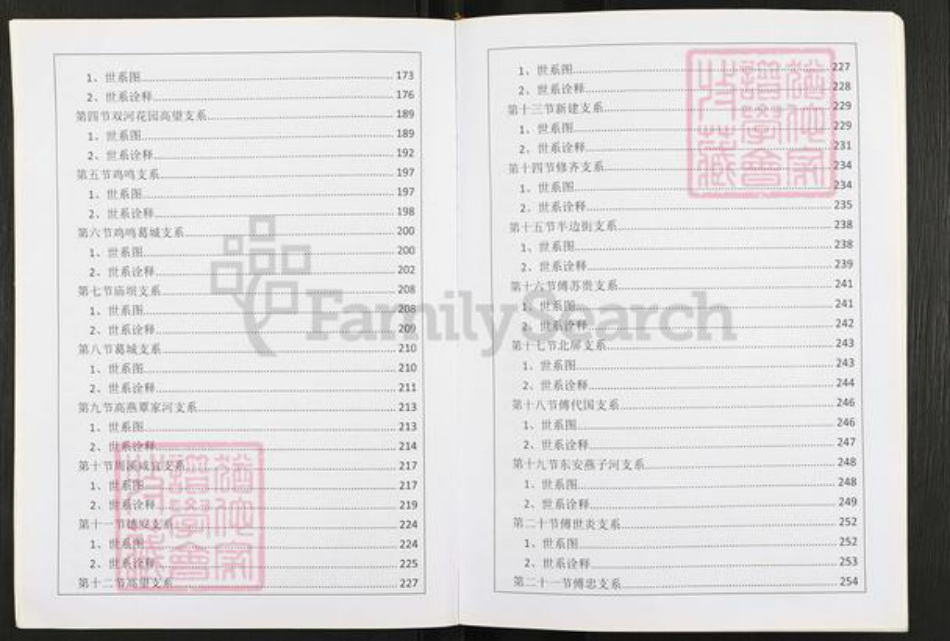 1、世系图 173
2、世系诠释 176
第四节双河花园高望支系 189
1、世系图 189
2、世系诠释 192
第五节鸡鸣支系 197
1、世系图 197
2、世系诠释 198
第六节鸡鸣葛城支系 200
1、世系图 200
2、世系诠释 202
第七节庙坝支系 208
1、世系图 208
2、世系诠释 209
第八节葛城支系 210
1、世系图 210
2、世系诠释 211
第九节高燕覃家河支系 213
1、世系图 213
2、世系诠释 214
第十节周溪咸宜支系 217
1、世系图 217
2、世系诠释 219
第十一节德安支系 224
1、世系图 224
2、世系诠释 225
第十二节高望支系 227
1、世系图 227
2、世系诠释 228
第十三节新建支系 229
1、世系图 229
2、世系诠释 231
第十四节修齐支系 234
1、世系图 234
2、世系诠释 235
第十五节半边街支系 238
1、世系图 238
2、世系诠释 239
第十六节傅苏贵支系 241
1、世系图 241
2、世系诠释 242
第十七节北屏支系 243
1、世系图 243
2、世系诠释 244
第十八节傅代国支系 246
1、世系图 246
2、世系诠释 247
第十九节东安燕子河支系 248
1、世系图 248
2、世系诠释 249
第二十节傅世炎支系 252
1、世系图 252
2、世系诠释 253
第二十一节傅忠支系 254
FamilySearch